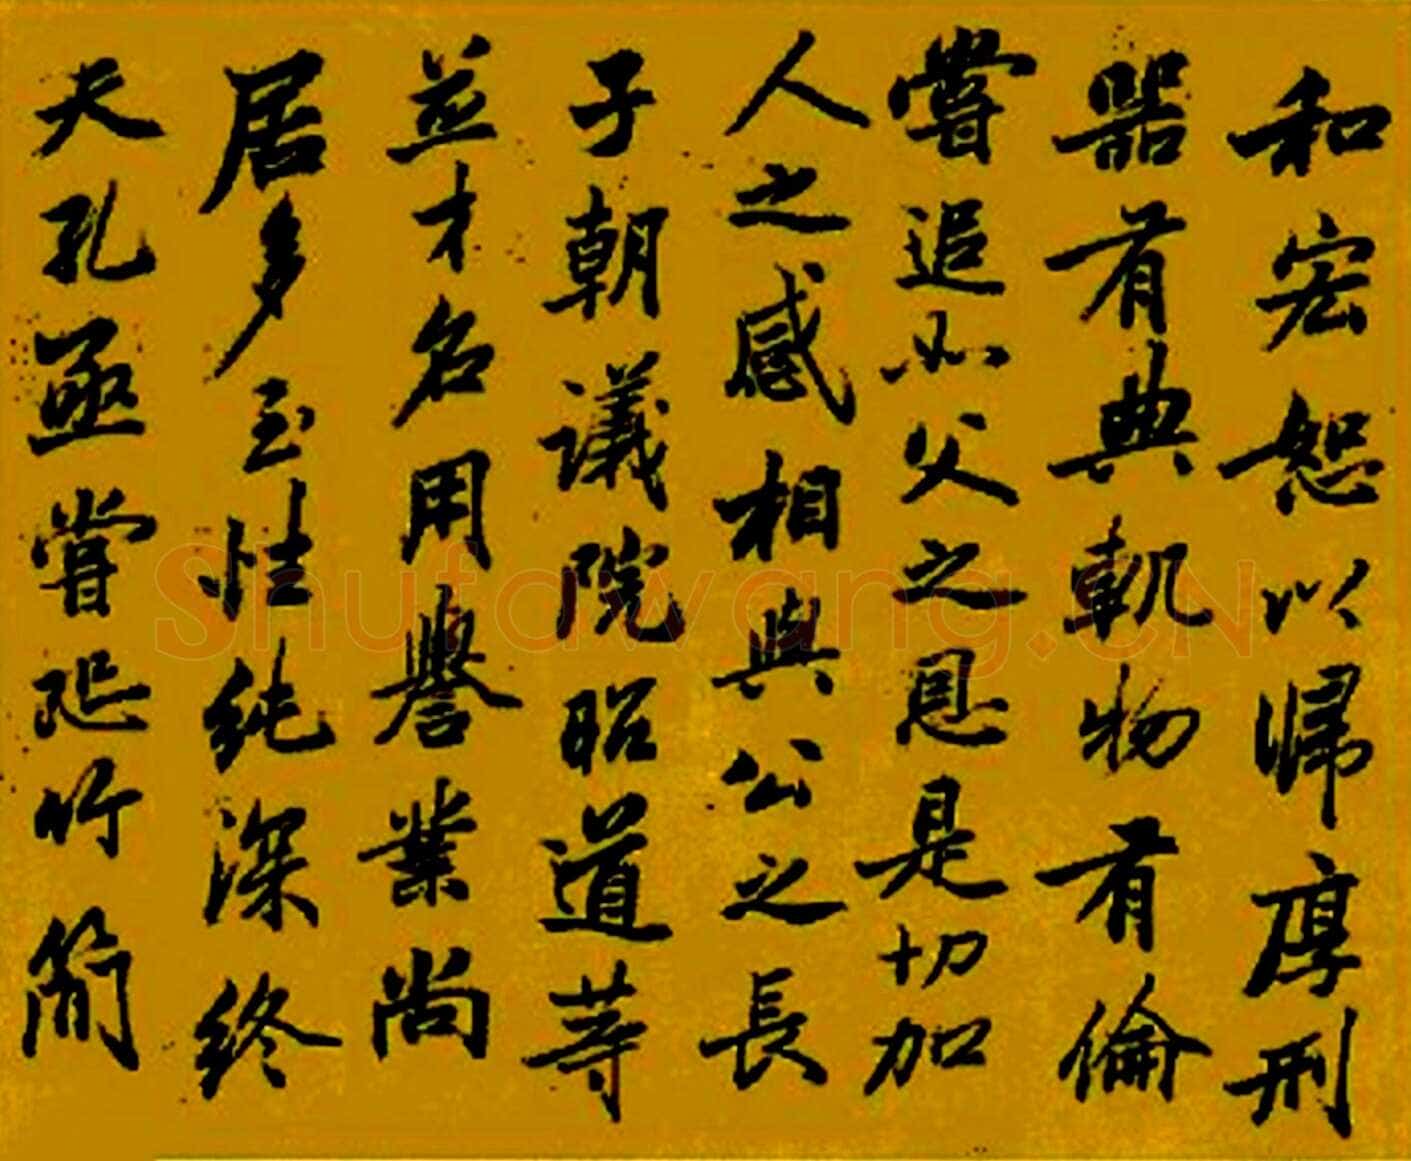 和宏恕以歸厚刑
器有典軌物有倫
嘗追如父之恩是切加
人之感相與公之長
子朝議院昭道等
並才名用譽業尚
居多至性純深終
天孔亟嘗延竹簡
Shufawang.CN